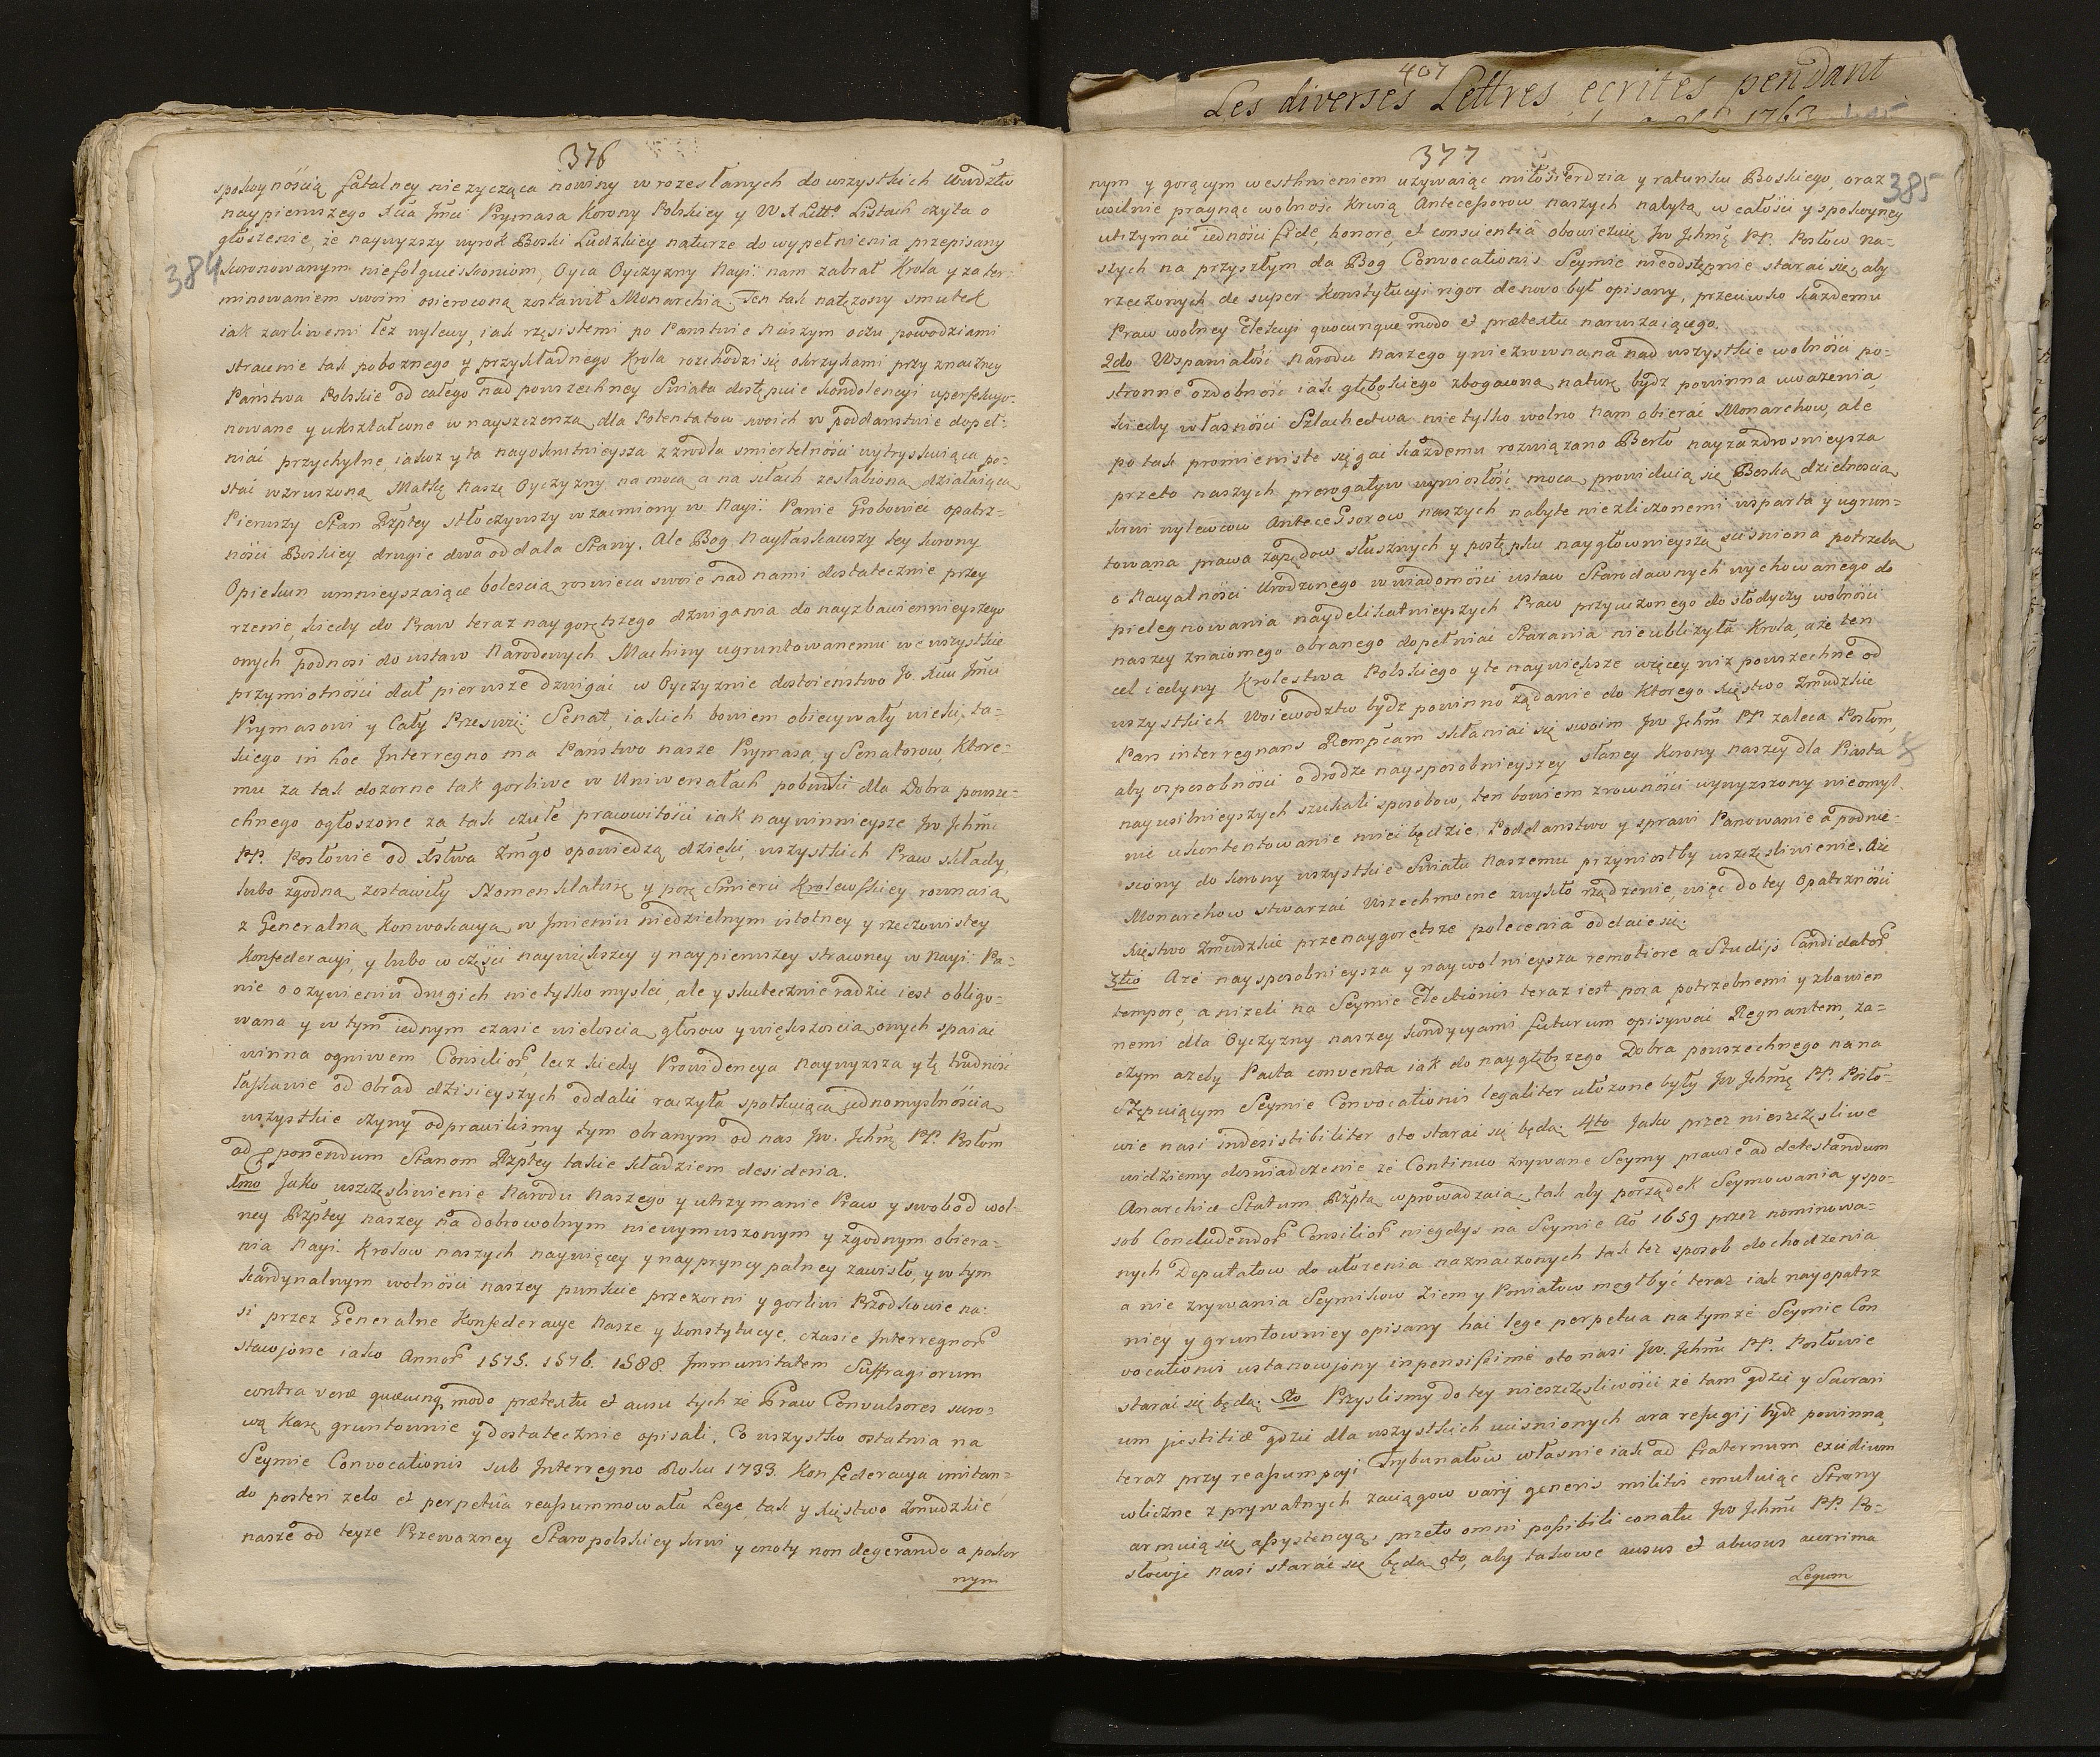 376
spokoynością fatalney nieżycząca nowiny w rozesłanych do wszystkich Wwdztw
naypierwszego Xcia Jmci Prymasa Korony Polskiey y W X Litt° Listach czyła o
głoszenie, że naywyzszy wyrok Boski Ludzkiey naturze do wypełnienia przepisany
384
koronowanym Oyca Oyczyzny Nayi: nam zabrał Krola y zater:
minowaniem swoim osieroconą zostawił Monarchią. Ten tak natężony smutek
iak zarliwemi łez wylewy, iak rzęsistemi po Panstwie Naszym oczu powodziami
stracenie tak poboznego y przykładnego Krola rozchodzi się okrzykami przy znaczney
Państwa Polskie od całego nad powszechney Swiata dostępuie kondolencyi uperfekcyo-
nowane y ukształcone w nayszczersza dla Potentatow swoich w poddanstwie dopeł:
niać przychylne, iakoż y ta nayokrutnieysza z zrodła smiertelności wytryskuiąca po-
stać wzruszoną Matkę Naszę Oyczyznę na mocą a na siłach zesłabioną działaiąca
Pierwszy Stan Rzptey stłoczywszy w zaćmiony w Nayi: Panie Grobowiec opatrz-
ności Boskiey drugie dwa oddala Stany. Ale Bog Nayłaskawszy tey korony
Opiekun umnieyszaiące bolescią rozwieca swoie nad nami dostatecznie przey
rzenie, kiedy do Praw teraz naygorętszego dzwigania do nayzbawiennieyszego
onych podnosi do ustaw Narodowych Machiny ugruntowanemu we wszystkie
przymiotności dał pierwsze dzwigać w Oyczyznie dostoienstwo Jo. Xciu Jmci
Prymasowi y Cały Przeswie: Senat, iakich bowiem obiecywały wieki, ta-
kiego in hoc Interregno ma Państwo nasze Prymasa, y Senatorow, Ktore-
mu za tak dozorne tak gorliwe w Uniwersałach pobudki dla Dobra powsze-
chnego ogłoszone za tak czułe prawowitości iak naywinnieysze Jw Jchmć
PP. Posłowie od Xstwa Żmgo opowiedzą dzięki, wszystkich Praw składy,
lubo zgodną zostawiły Nomenklaturę y porę Smierci Krolewskiey rownaią
z Generalną Konwokacyą w Jmieniu niedzielnym istotney y rzeczowistey
Konfederacyi, y lubo w części naywiększey y naypierwszey strawney w Nayi: Pa-
nie o ozywieniu drugich nie tylko myslić, ale y skutecznie radzić iest obligo-
wana y w tym iednym czasie wieloscią głosow y większoscią onych spaiać
winna ogniwem Consilior, lecz kiedy Prowidencya naywyzsza y tę trudnosc
łaskawie od Obrad dzisieyszych oddalić raczyła spotkaiąca jednomyslnoscia
wszystkie czyny odprawilismy tym obranym od nas Jw. Jchmć PP. Posłom
ad pponendum Stanom Rzptey takie kładziem desideria.
1mo Jako uszczęsliwienie Narodu Naszego y utrzymanie Praw y swobod wol-
ney Rzptey naszey na dobrowolnym niewymuszonym y zgodnym obiera-
nia Nayi: Krolow naszych naywięcey y naypryncypalney zawisło, y w tym
kardynalnym wolności naszey punkcie przezorni y gorliwi Przodkowie na:
si przez Generalne Konfederacye Nasze y konstytucye, czasie Interregnor
stawione iako Annor 1575. 1576. 1588. Jmmunitatem Suffragiorum
contra vere quocunq modo prætextu et ausu tych że Praw Convulsores suro-
wą karę gruntownie y dostatecznie opisali. Co wszystko ostatnia na
Seymie Convocationis sub Interregno Roku 1733. Konfederacya imitan-
do posteri zelo et perpetua reassummowała Lege, tak y Xięstwo Żmudzkie
nasze od teyze Przewazney Staropolskiey krwi y cnoty non degerando a pokor
nym
407
Les diverses Lettres ecrites pendant
1763
377
385
nym y gorącym westhnieniem uzywaiąc miłosierdzia y ratunku Boskiego, oraz
usilnie pragnąc wolność krwią Antecessorow naszych nabytą w całości y spokoyney
utrzymać iedności fide, honore, et conscientia obowiezuię Jw Jchmć PP. Posłow na-
szych na przyszłym da Bog Convocationis Seymie nieodstępnie starać się, aby
rzeczonych de super Konstytucyi rigor denovo był opisany, przeciwko każdemu
Praw wolney Elekcyi quocunque modo et prætextu naruszaiącego.
2do Wspaniałość Narodu Naszego y niezrownana nad wszystkie wolności po-
stronne ozdobnosc iak głębokiego zbogacona naturę bydz powinna uwazenia,
kiedy własności Szlachectwa nie tylko wolno nam obierać Monarchow, ale
po tak promieniste sięgać każdemu rozwiązano Berło nayzazdrosnieysza
przeto naszych prerogatyw wyniosłość mocą prowiduią się Boską dzielnoscią
krwi wylewow Antecessorow naszych nabyte niezliczonemi wsparta y ugrun-
towana prawa zapędow słusznych y postępku naygłownieyszą sciśniona potrzebą
o Nacyalności Urodzonego w wiadomości ustaw Starodawnych wychowanego do
pielęgnowania naydelikatnieyszych Praw przyuczonego do słodyczy wolności
naszey znaiomego obranego dopełniać Starania nieubliżyła Krola, aże ten
cel iedyny Krolestwa Polskiego y te naywiększe więcey niż powszechne od
wszystkich Woiewodztw bydz powinno żądanie do Ktorego Xięstwo Żmudzkie
Pan interregnans Rempcam skłaniać się swoim Jw Jchmć PP. zaleca Posłom,
aby osposobności o drodze naysposobnieyszey słaney Korony naszey dla Piasta
nayusilnieyszych szukali sposobow, ten bowiem z rowności wywyzszony nieomyl
nie ukontentowanie mieć będzie, Poddanstwo y sprawi Panowanie a podnie-
siony do korony wszystkie Swiatu Naszemu przyniosłby uszczęsliwienie. Aże
Monarchow stwarzać Wszechmocne zwykło rządzenie, więc do tey Opatrzności
Xięstwo Żmudzkie przenaygorętsze polecenia oddaie się.
3tio Aże naysposobnieysza y naywolnieysza remotiore a Studijs Candidator
tempore, a niżeli na Seymie Electionis teraz iest pora potrzebnemi y zbawien
nemi dla Oyczyzny naszey kondycyami futurum opisywać Regnantem, za-
czym azeby Pacta conventa iak do naygłębszego Dobra powszechnego na na
stępuiącym Seymie Convocationis legaliter ułożone były Jw Jchmć PP. Posło-
wie nasi indesistibiliter oto starać się będą. 4to Jako przez nieszczęsliwe
widziemy doswiadczenie że Continuo zrywane Seymy prawie ad detestandum
Anarchiæ Statum Rzptą wprowadzaią, tak aby porządek Seymowania y spo-
sob Concludendor Consilior niegdys na Seymie Ao 1659 przez nominowa-
nych Deputatow do ułożenia naznaczonych tak też sposob dochodzenia
a nie zrywania Seymikow Ziem y Powiatow mogł być teraz iak nayopatrz
niey y gruntowniey opisany hac lege perpetua na tymże Seymie Con
vocationis ustanowiony inpensissime oto nasi Jw. Jchmć PP. Posłowie
starać się będą. 5to Przyslismy do tey nieszczęsliwości że tam gdzie y Sacrari
um justitiæ gdzie dla wszystkich ucisnionych ara refugij bydz powinna,
teraz przy reassumpcyi Trybunałow własnie iak ad fraternum excidium
uliczne z prywatnych zaciągow varij generis militis emuluiąc Strony
armuią się assystencyą, przeto omni possibili conatu Jw Jchmć PP. Po-
słowie nasi starać się będą oto, aby takowe ausus et abusus acerrima
Legum